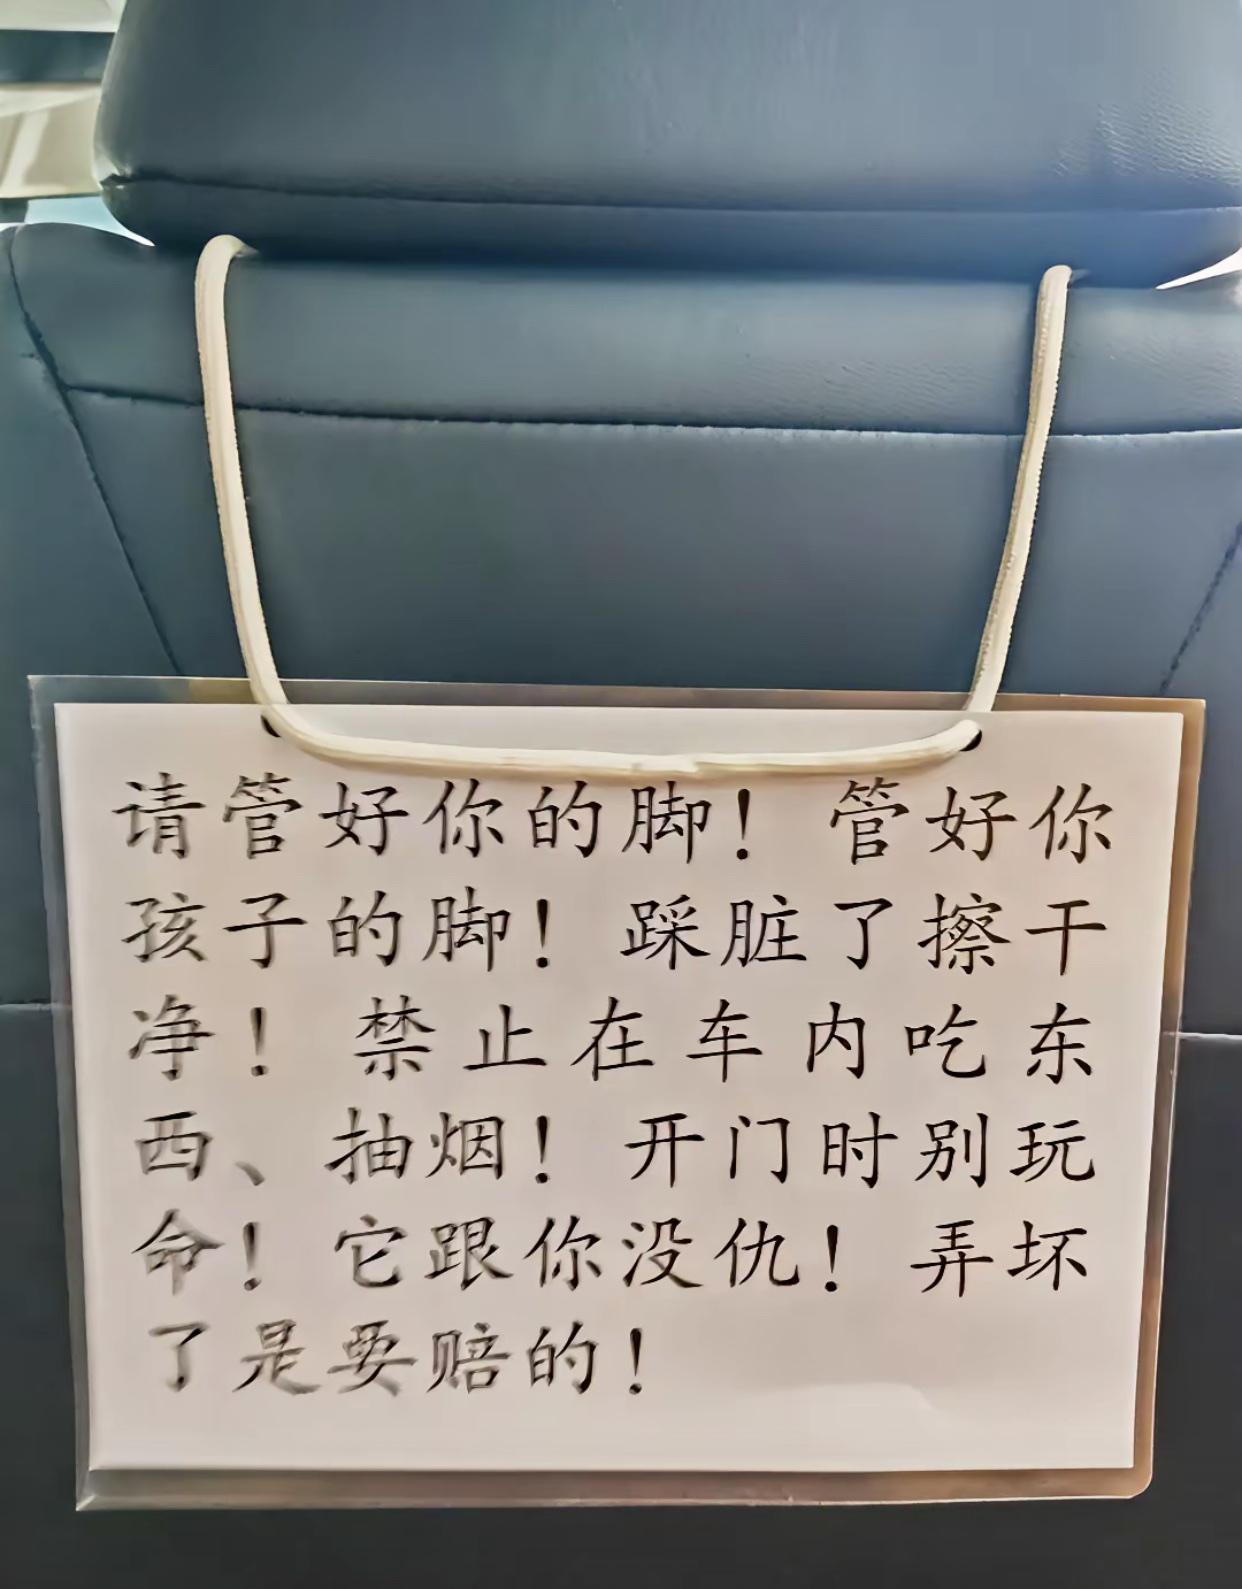 请管好你的脚！管好你
孩子的脚！踩脏了擦干
净！禁止在车内吃东
西、抽烟！开门时别玩
命！它跟你没仇！弄坏
了是要赔的！